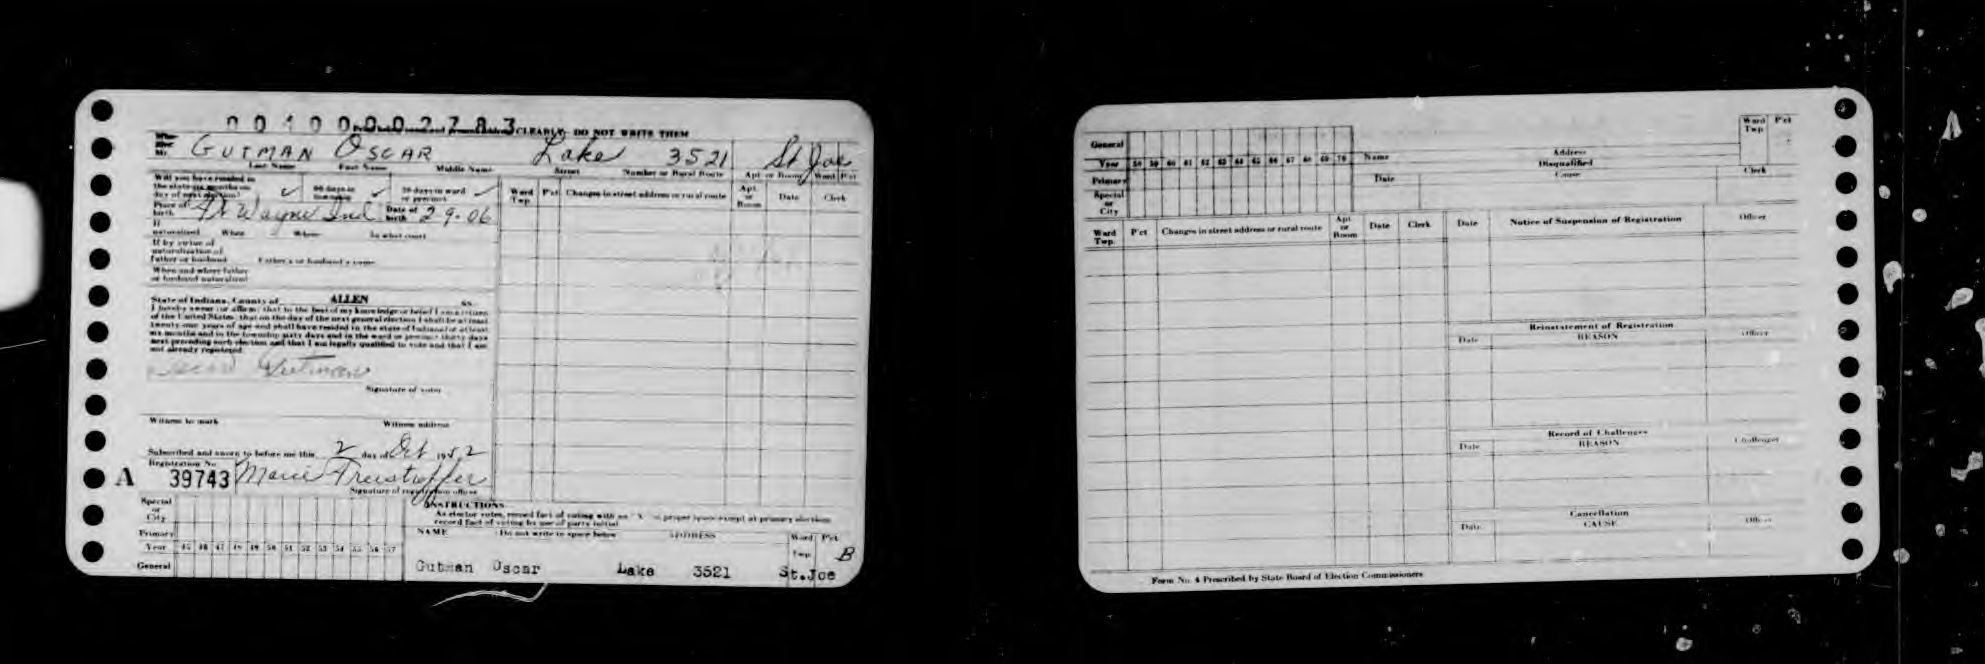 0010000002783
CLEARLY; DO NOT WRITE THEM
Mr. GUTMAN OSCAR Lake 3521 St Joe
Last Name First Name Middle Name Street Number or Rural Route Apt or Room Ward P'ct
Will you have resided in
the state six months on
day of next election? ✓ 60 days in
township ✓ 30 days in ward
or precinct ✓
Place of
birth Ft Wayne Ind Date of
birth 2-9-06
If
naturalized When Where In what court
If by virtue of
naturalization of
father or husband Father's or husband's name
When and where father
or husband naturalized
State of Indiana, County of ALLEN ss.
I hereby swear (or affirm) that to the best of my knowledge or belief I am a citizen
of the United States; that on the day of the next general election I shall be at least
twenty-one years of age and shall have resided in the state of Indiana for at least
six months and in the township sixty days and in the ward or precinct thirty days
next preceding such election and that I am legally qualified to vote and that I am
not already registered.
Oscar Gutman
Signature of voter
Witness to mark Witness address
Subscribed and sworn to before me this 2 day of Oct 1952
Registration No.
A 39743 Marie
Signature of registration officer
Ward
Twp. P'ct Changes in street address or rural route Apt
or
Room Date Clerk
Special
or
City
Primary
Year 45 46 47 48 49 50 51 52 53 54 55 56 57
General
INSTRUCTIONS
As elector votes, record fact of voting with an "X" in proper space except at primary election
record fact of voting by use of party initial
NAME Do not write in space below ADDRESS Ward
Twp. P'ct
B
Gutman Oscar Lake 3521 St.Joe
General
Year 58 59 60 61 62 63 64 65 66 67 68 69 70
Primary
Special
or
City
Name Address Ward
Twp. P'ct
Disqualified
Date Cause Clerk
Ward
Twp. P'ct Changes in street address or rural route Apt
or
Room Date Clerk
Date Notice of Suspension of Registration Officer
Reinstatement of Registration
Date REASON Officer
Record of Challenges
Date REASON Challenger
Cancellation
Date CAUSE Officer
Form No. 4 Prescribed by State Board of Election Commissioners